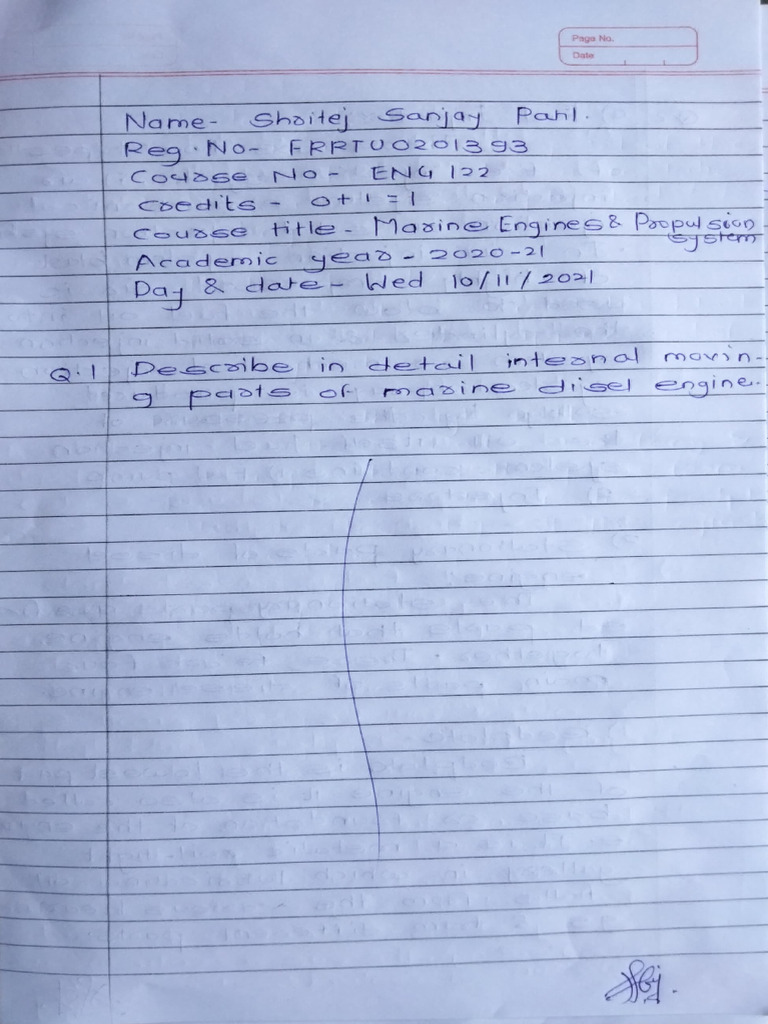 Page No.
Date
Name- Shritej Sanjay Patil.
Reg. No- FRRTU0201393
Course No - ENG 122
Credits - 0+1=1
Course title - Marine Engines & Propulsion
system
Academic year - 2020-21
Day & date - Wed 10/11/2021
Q.1 Describe in detail internal movin-
g parts of marine disel engine.